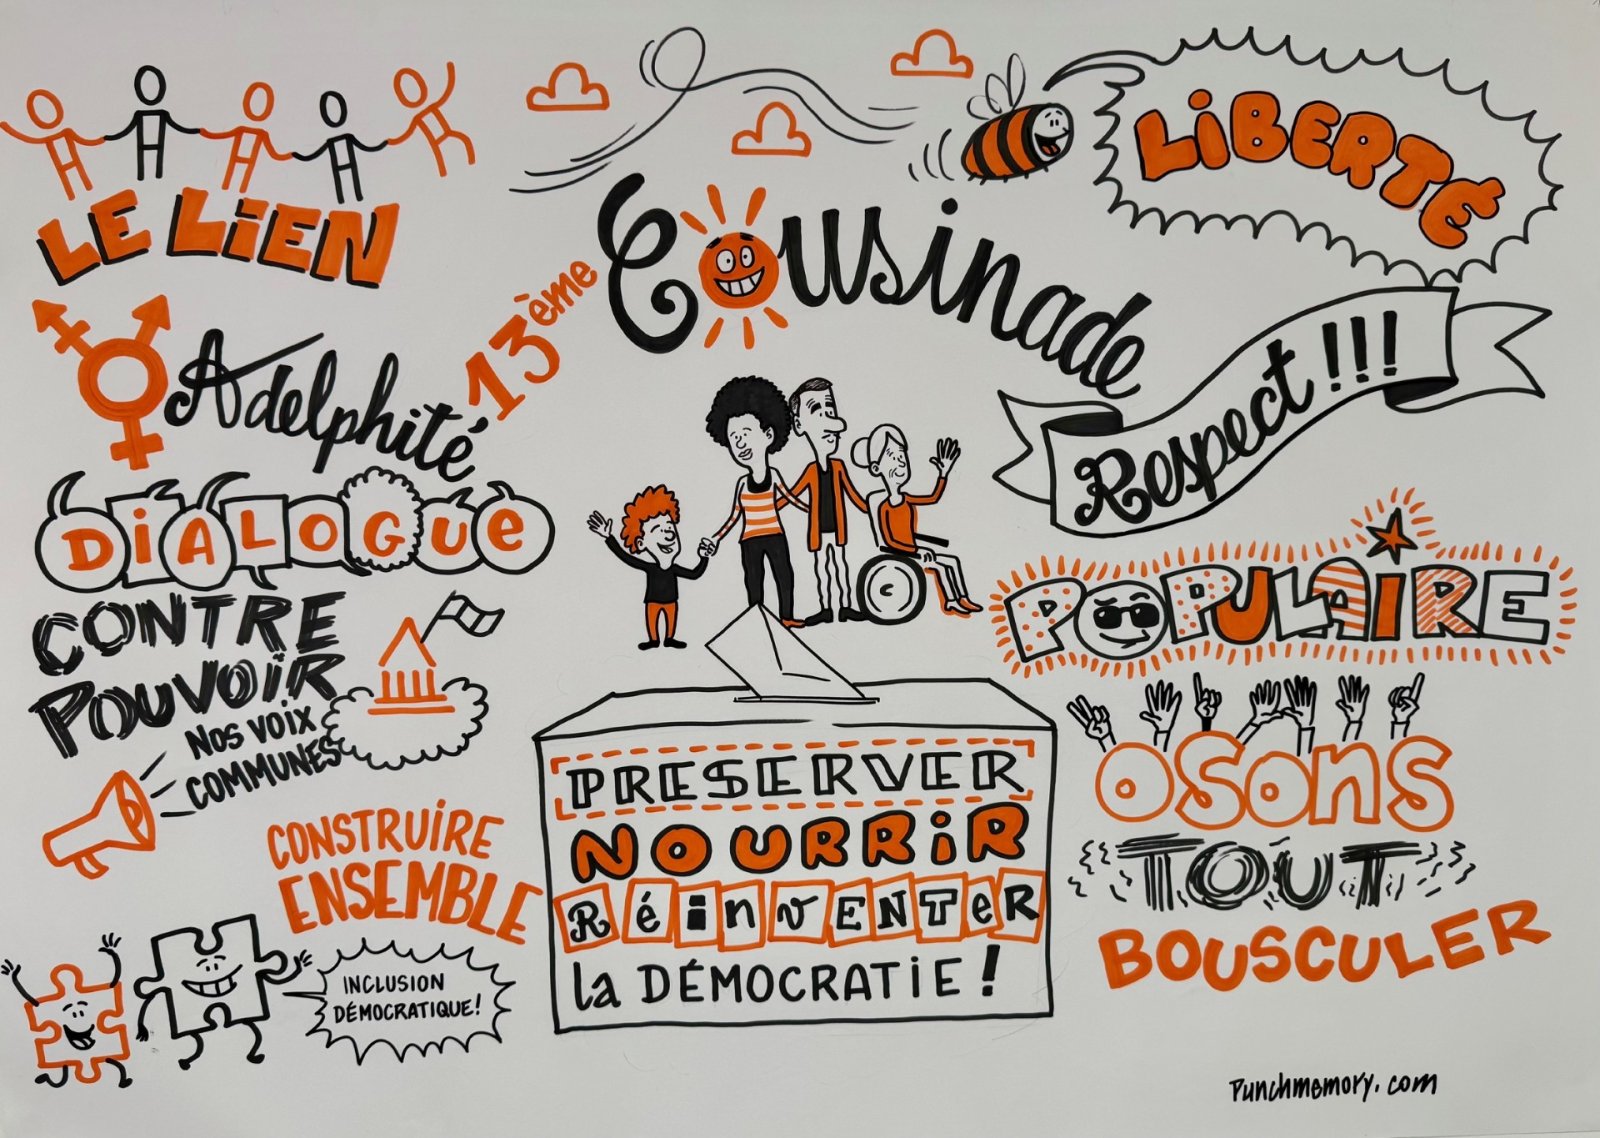 LE LIEN
13ème Cousinade
LIBERTÉ
Adelphité
Respect!!!
DIALOGUE
POPULAIRE
CONTRE
POUVOIR
NOS VOIX
COMMUNES
OSONS
TOUT
BOUSCULER
CONSTRUIRE
ENSEMBLE
INCLUSION
DÉMOCRATIQUE!
PRESERVER
NOURRIR
RéinvENTeR
la DÉMOCRATIE!
Punchmemory.com